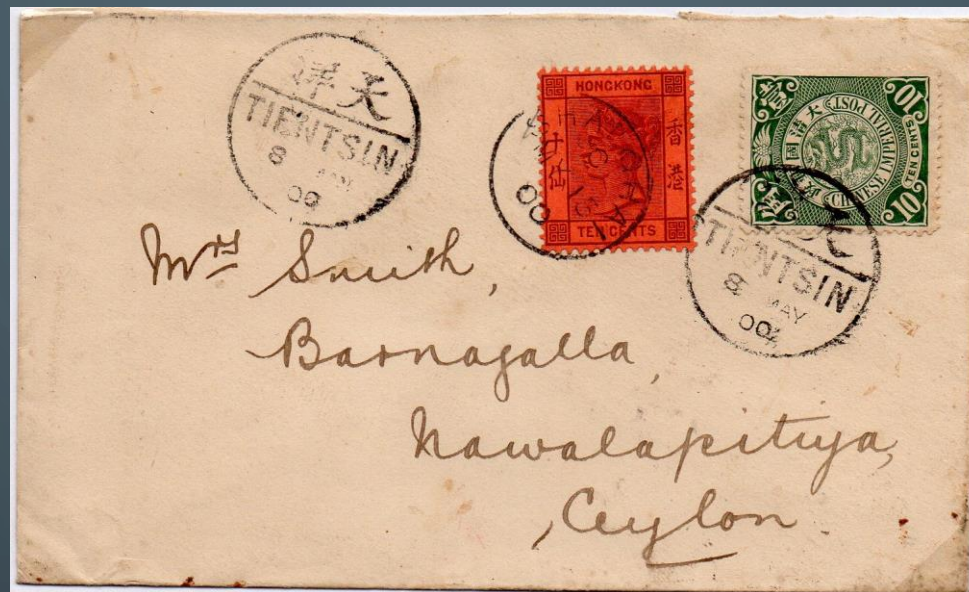 天津
TIENTSIN
8 MAY
00
HONGKONG
香港
TEN CENTS
大清國
CHINESE IMPERIAL POST
10 TEN CENTS 10
TIENTSIN
8 MAY
00
Mrs Smith,
Barnagalla,
Nawalapitiya,
Ceylon